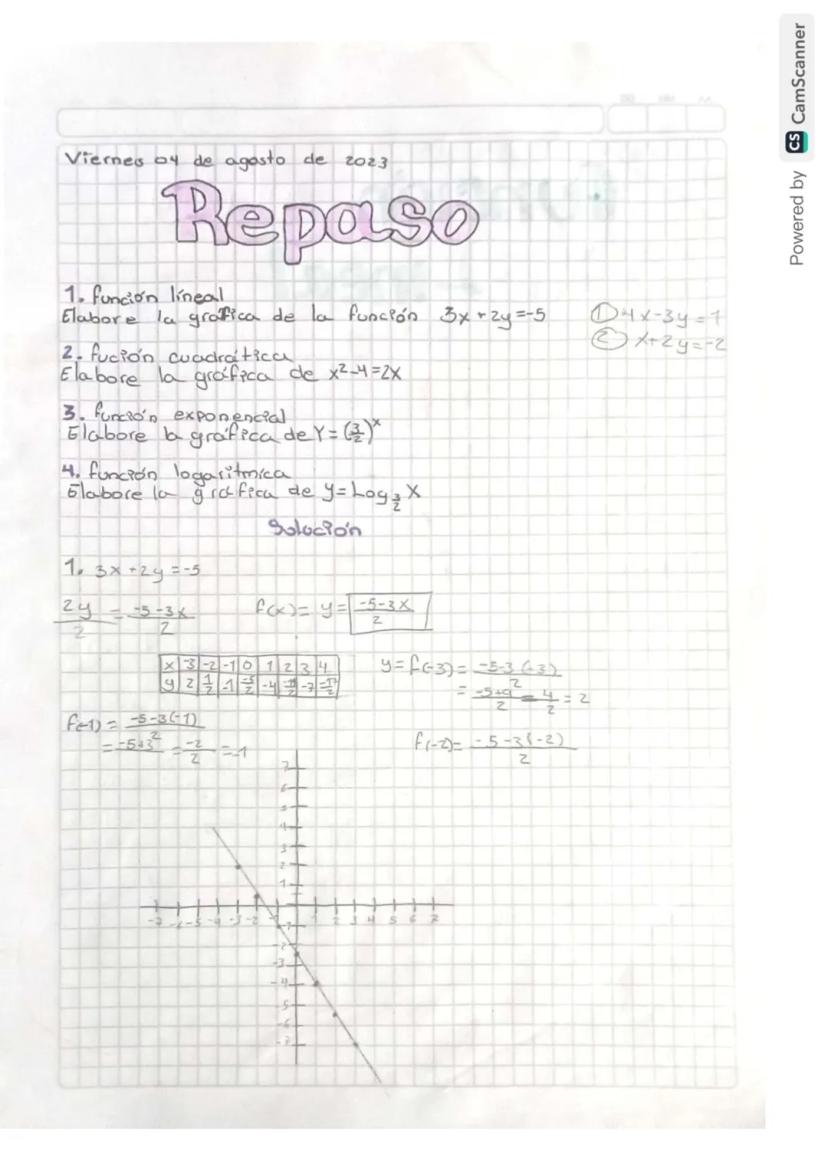 Viernes 04 de agosto de 2023
Repaso
1. función líneal
Elabore la grafica de la función 3x+2y=-5
① 4x-3y=1
② x+2y=-2
2. fución cuadrática
Elabore la gráfica de x²-4=2x
3. función exponencial
Elabore la gráfica de Y=(3/2)^x
4. función logarítmica
Elabore la gráfica de y=Log 3/2 X
Solución
1. 3x+2y=-5
2y/2 = -5-3x/2 f(x)= y= -5-3x/2
x -3 -2 -1 0 1 2 3 4
y 2 1/2 -1 -5/2 -4 -11/2 -7 -17/2
y=f(-3)= -5-3(-3)/2
= -5+9/2 = 4/2 = 2
f(-1)= -5-3(-1)/2
= -5+3 = -2/2 = -1
f(-2)= -5-3(-2)/2
7
6
5
4
3
2
1
-7 -6 -5 -4 -3 -2 -1 1 2 3 4 5 6 7
-1
-2
-3
-4
-5
-6
-7
Powered by CS CamScanner